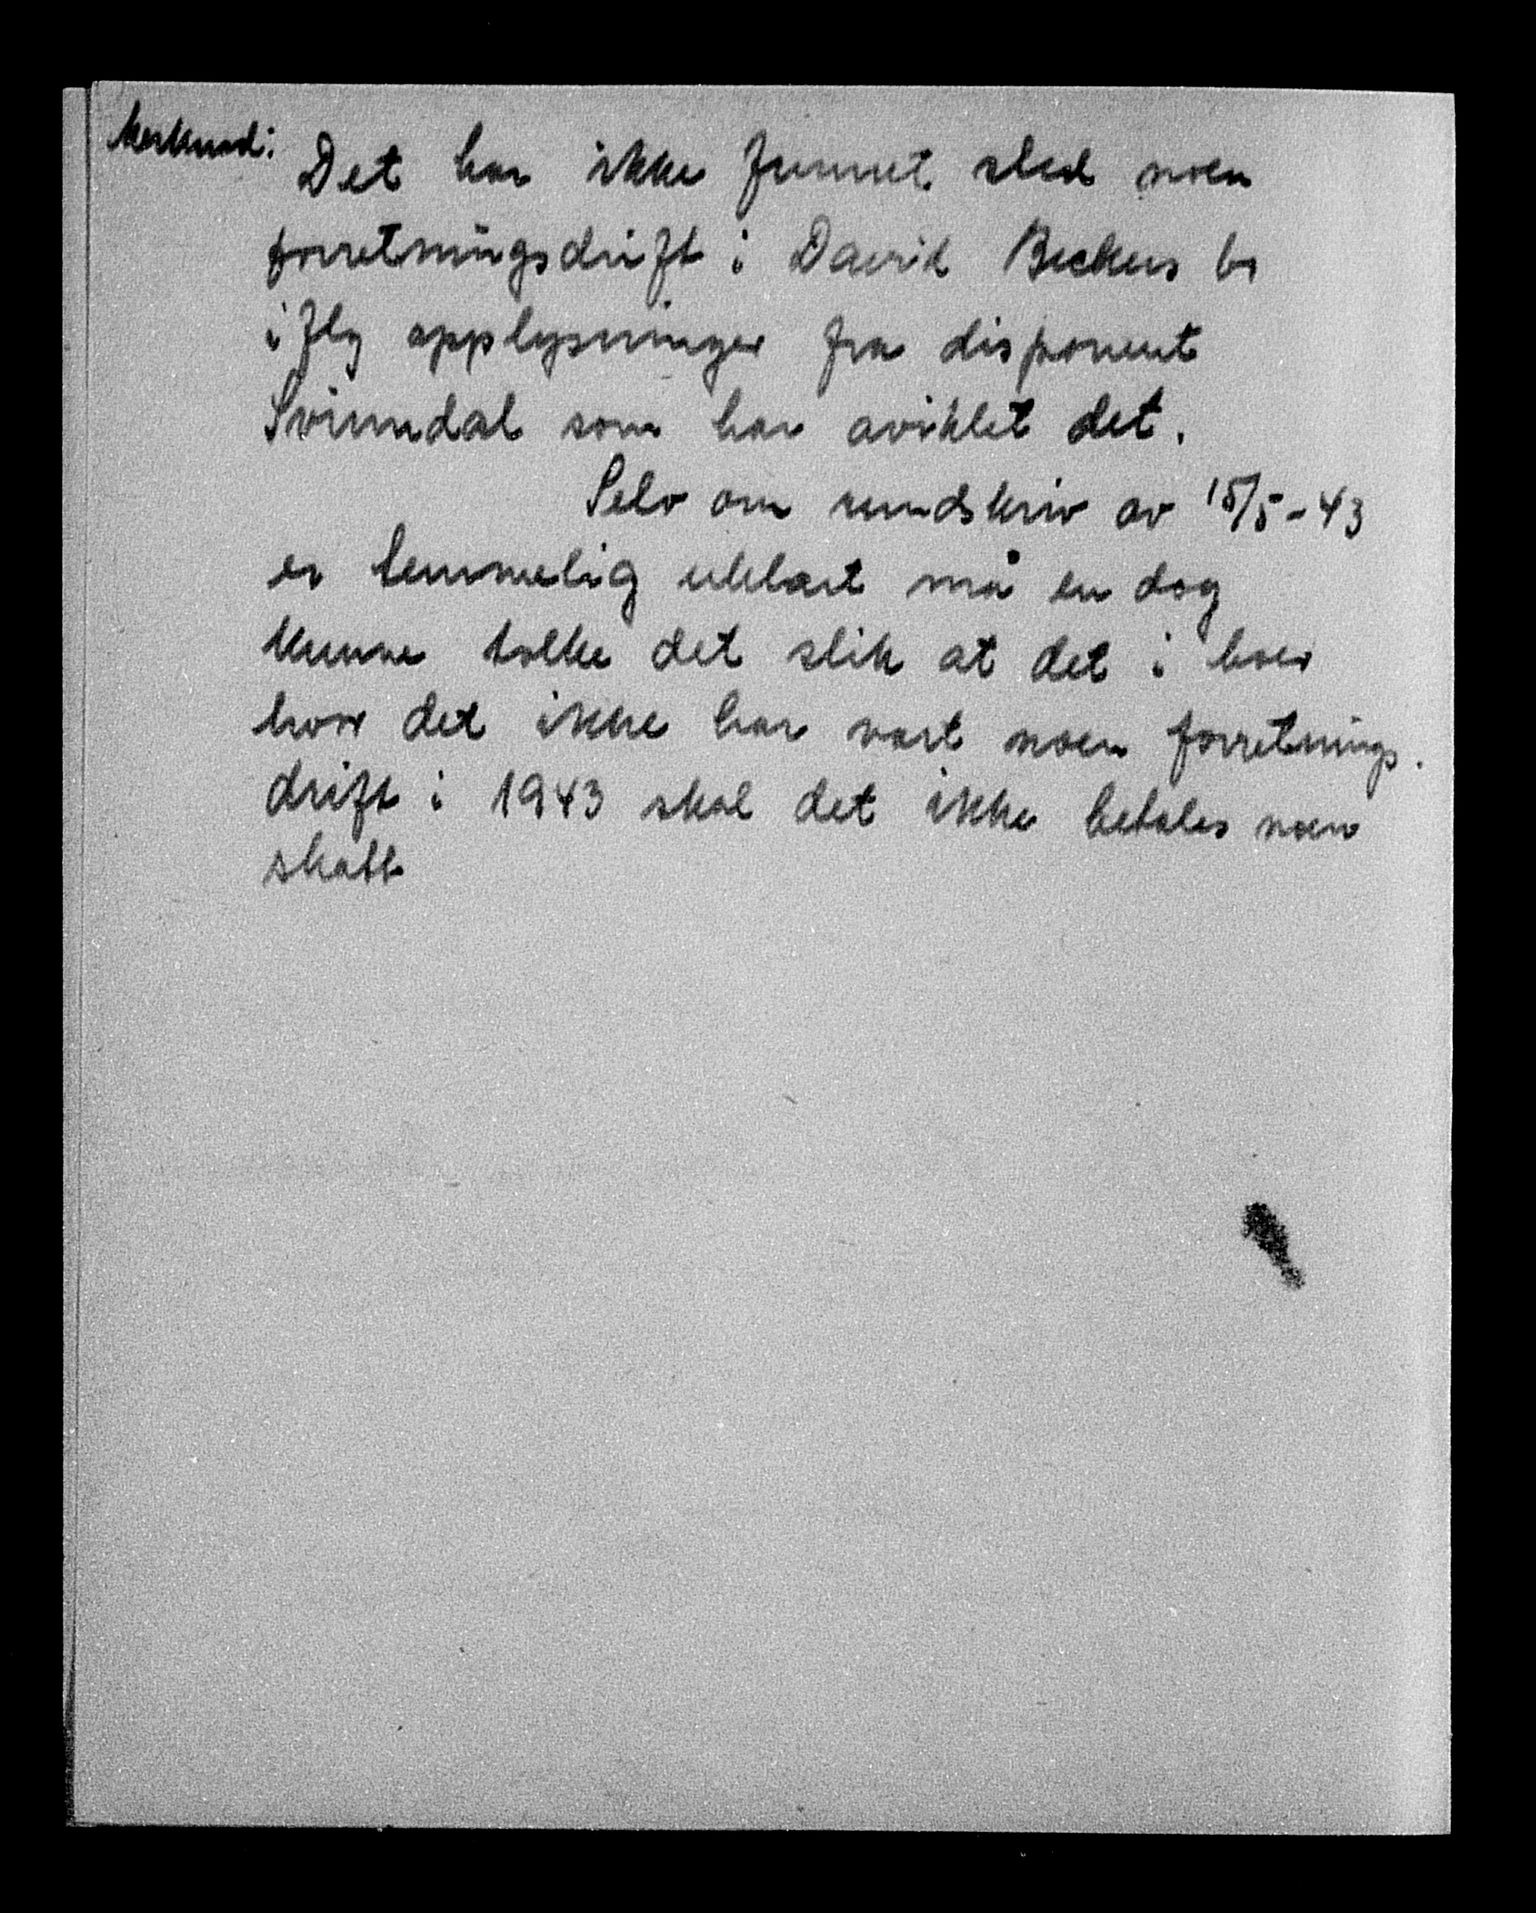 Merknad:
Det har ikke funnet sted noen
forretningsdrift i David Beckers bo
iflg opplysninger fra disponent
Svinndal som har aviklet det.
Selv om rundskriv av 15/5-43
er temmelig uklart må en dog
kunne tolke det slik at det i boer
hvor det ikke har vært noen forretnings.
drift i 1943 skal det ikke betales noen
skatt